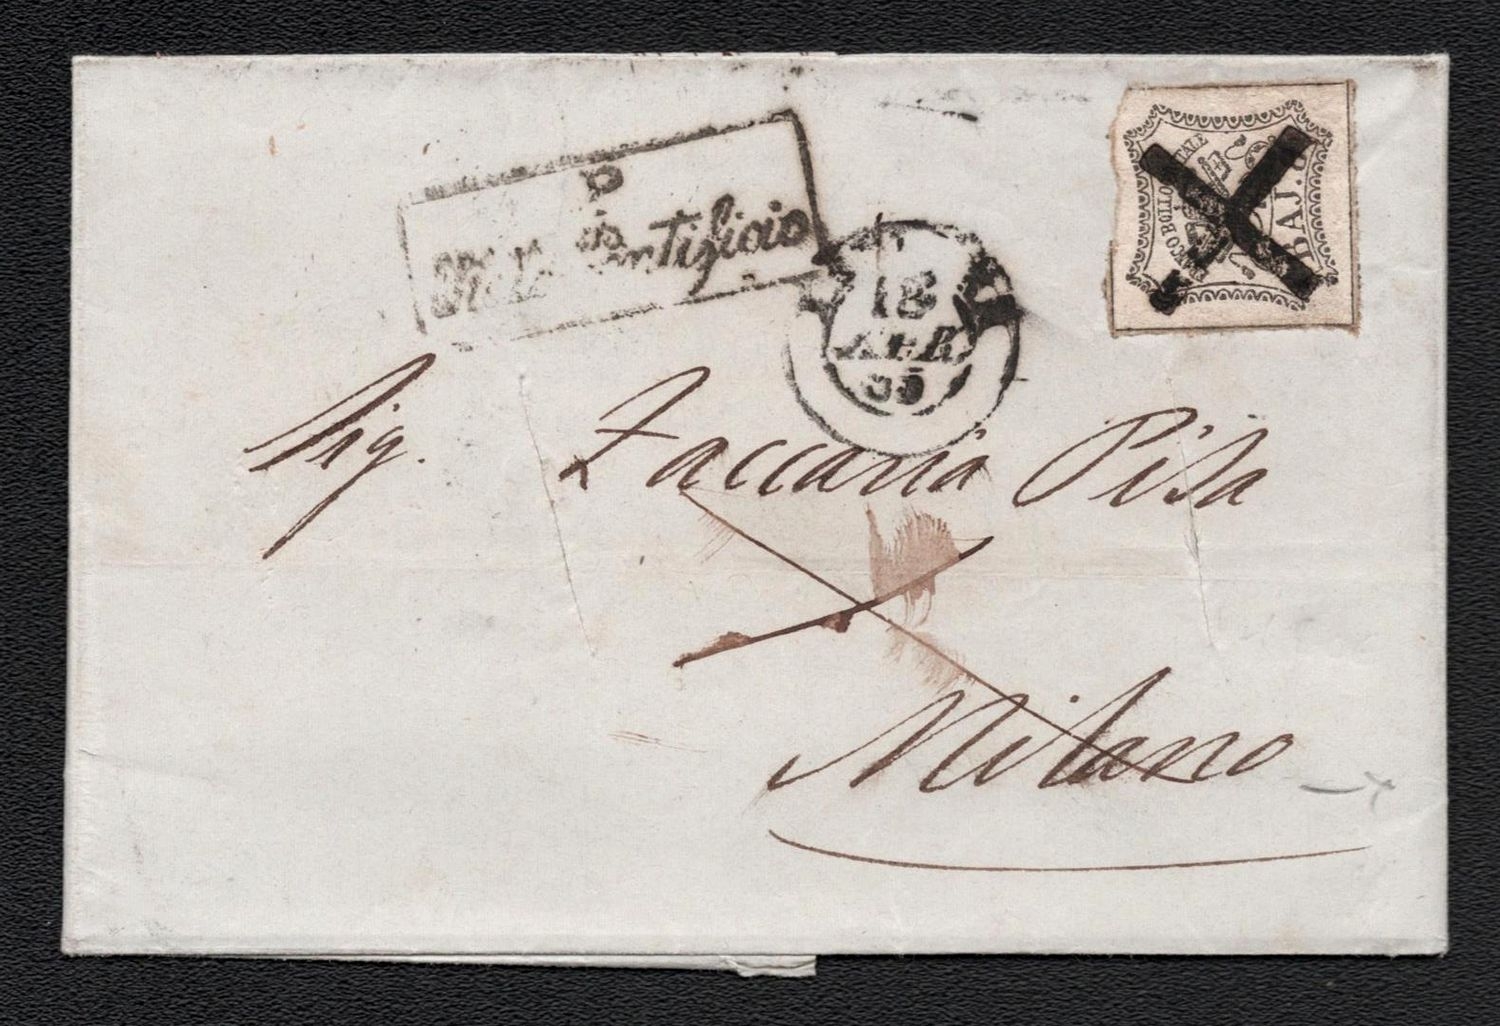 P
Stato Pontificio
18
APR
FRANCO BOLLO POSTALE
BAJ.
Sig. Zaccaria Pisa
Milano